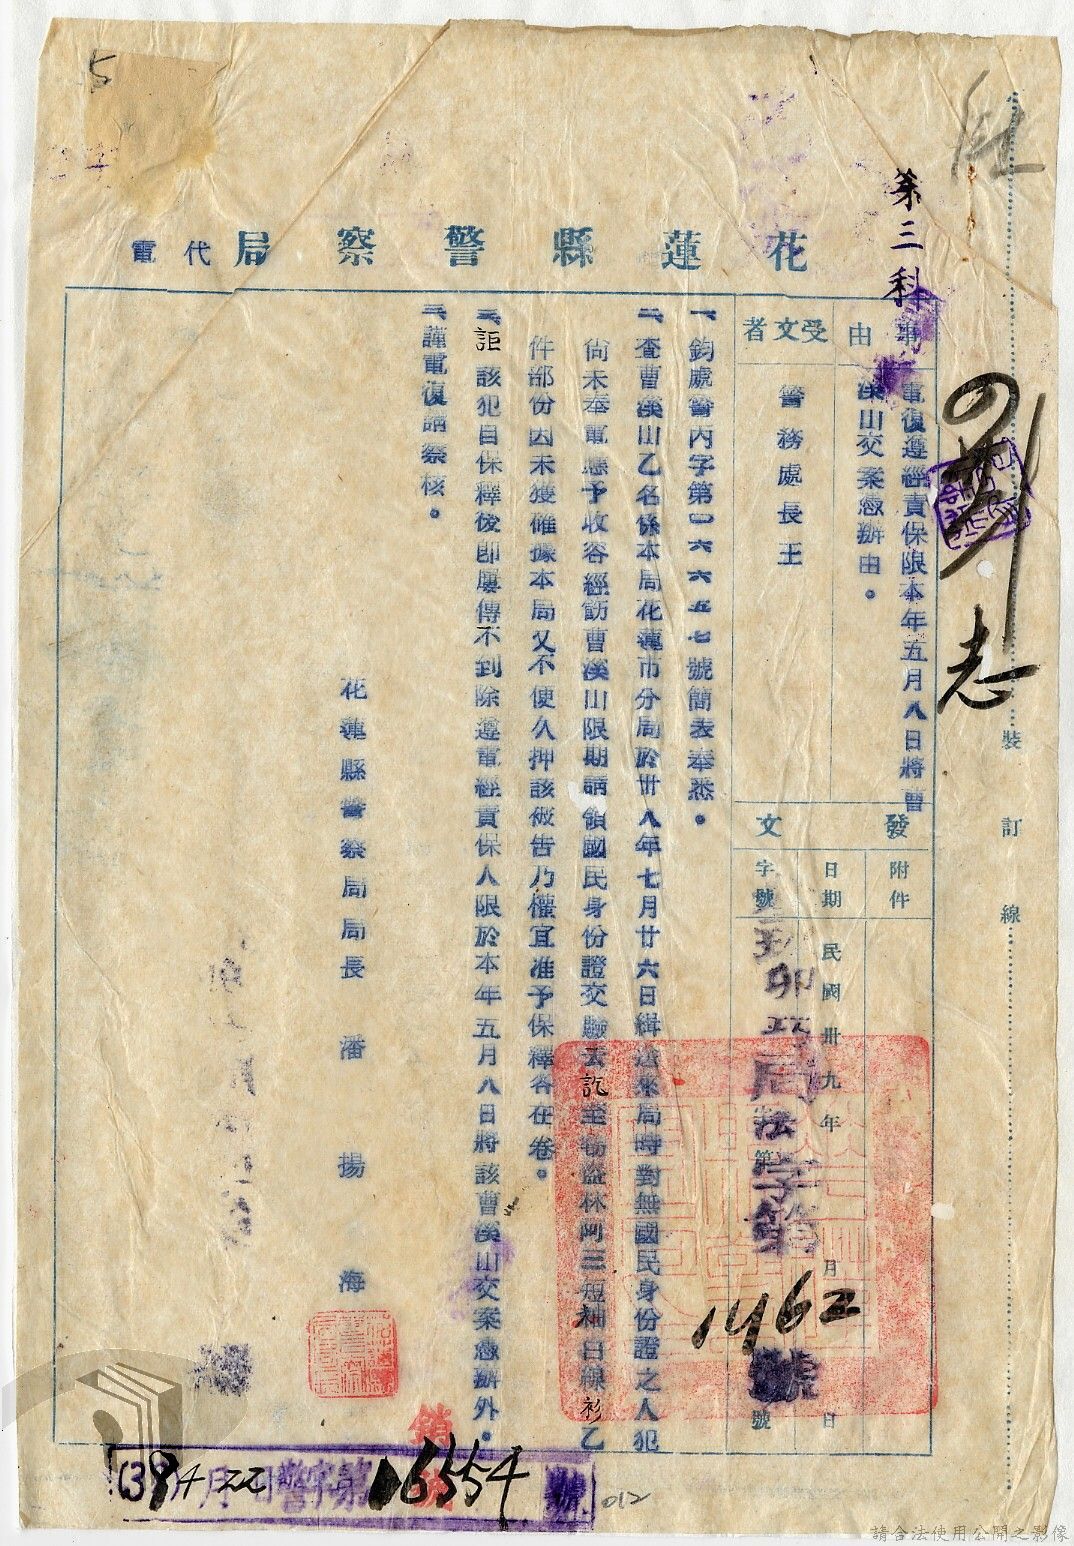 5
第三科
花蓮縣警察局代電
事由
電復遵經責保限本年五月八日將曹
溪山交案憑辦由。
受文者
警務處長王
發文
附件
日期
民國卅九年
月
日
字號
卯
局法字第
1462
號
一、鈞處警內字第一六六五七號簡表奉悉。
二、查曹溪山乙名係本局花蓮市分局於卅八年七月廿六日緝送來局時對無國民身份證之人犯
尚未奉電應予收容經飭曹溪山限期請領國民身份證交驗去訖至竊盜林阿三短袖白線衫乙
件部份因未獲確據本局又不便久押該被告乃權宜准予保釋各在卷。
三、詎該犯自保釋後即屢傳不到除遵電經責保人限於本年五月八日將該曹溪山交案憑辦外。
三、謹電復請察核。
花蓮縣警察局局長潘揚海
裝訂線
劉志
銷號
(39)4月22日警字第16554號
012
請合法使用公開之影像